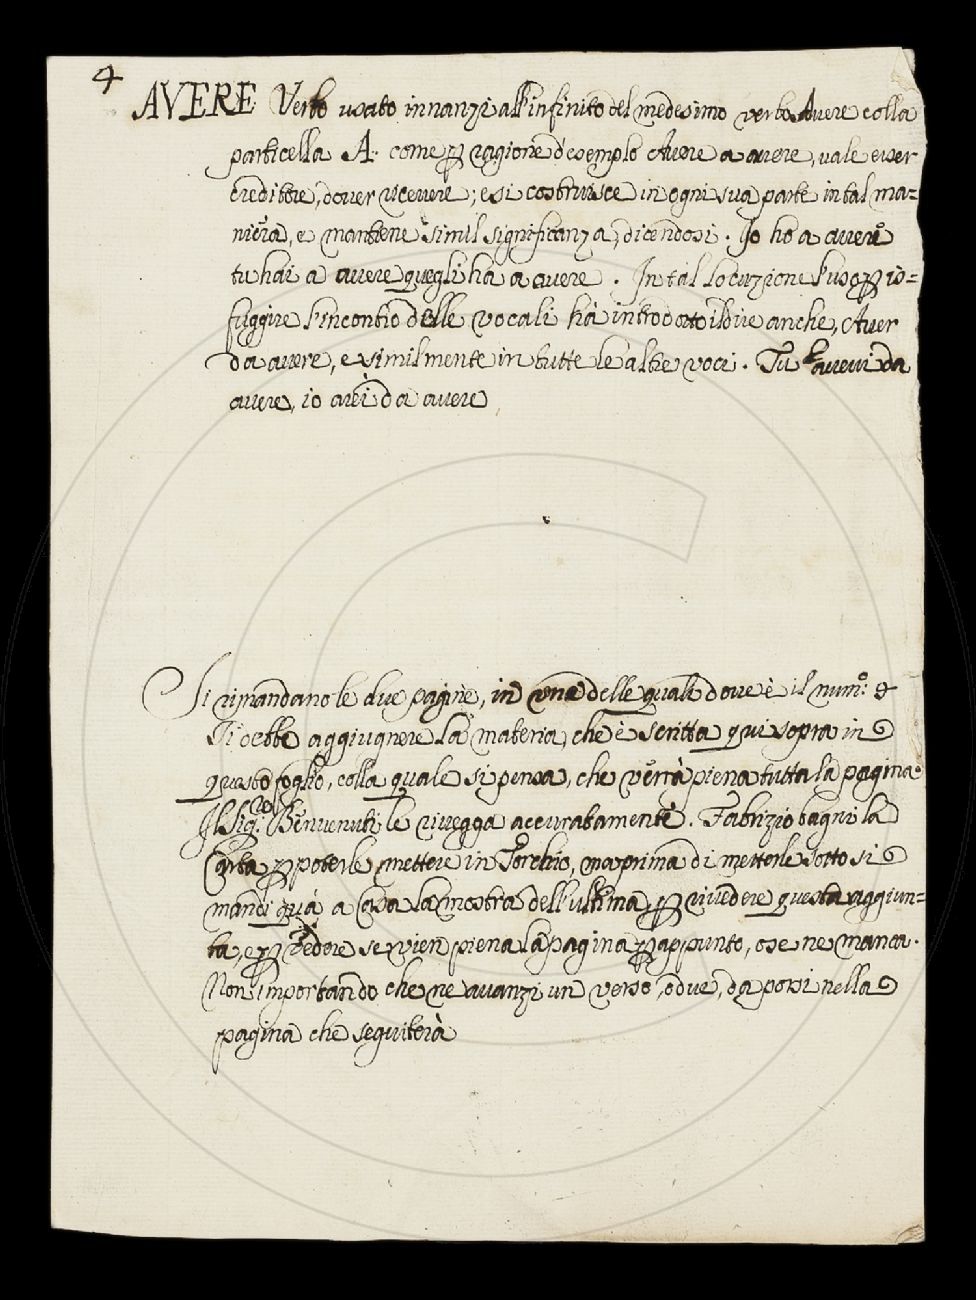 4
AVERE Verbo usato innanzi all'infinito del medesimo verbo Avere colla
particella A. come p ragione d'esemplo Avere a avere, vale esser
creditore, dover ricevere; e si costruisce in ogni sua parte in tal ma=
niera, e mantiene simil significanza, dicendosi. Io ho a avere
tu hai a avere quegli ha a avere. In tal locuzione l'uso p is=
fuggire l'incontro delle vocali hà introdotto il dire anche, Aver
da avere, e similmente in tutte le altre voci. Tu averai da
avere, io arei da avere
Si rimandano le due pagine, in una delle quali dove è il num.º 9
Si debbe aggiugnere la materia, che è scritta qui sopra in
questo foglio, colla quale si pensa, che verrà piena tutta la pagina
Il Sig.re Benvenuti le rivegga accuratamente. Fabrizio bagni la
Carta p poterle mettere in Torchio, ma prima di metterle sotto si
mandi quà a Casa la mostra dell'ultima p rivedere questa aggiun=
ta, e p vedere se vien piena la pagina p appunto, o se ne manca.
Non importando che ne avanzi un verso, o due, da porsi nella
pagina che seguiterà